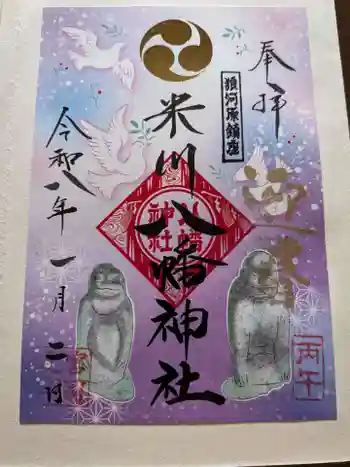 奉拝
狼河原鎮座
米川八幡神社
八幡神社
令和八年一月二日
丙午